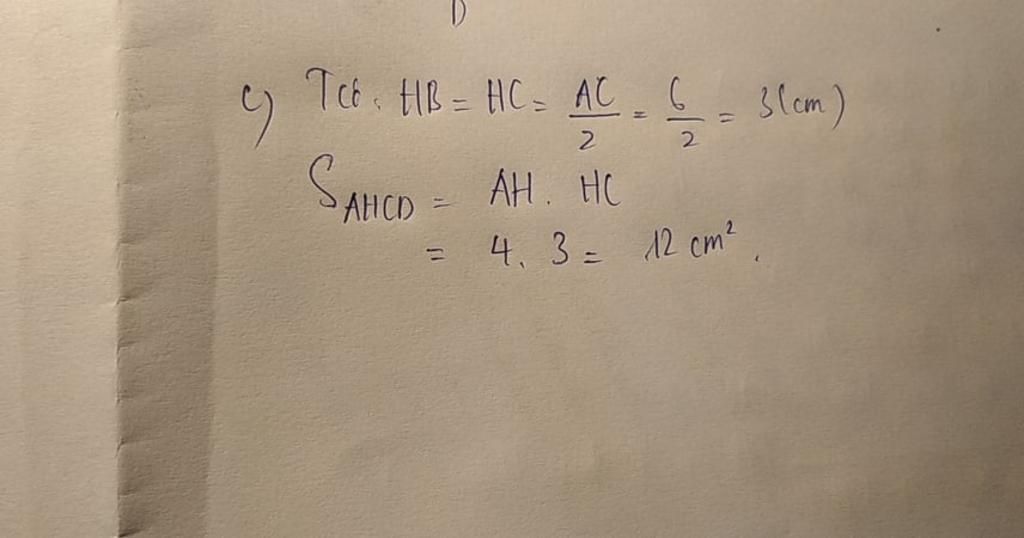 D
c) Tcó: HB = HC = AC/2 = 6/2 = 3(cm)
S AHCD = AH. HC
= 4. 3 = 12 cm².